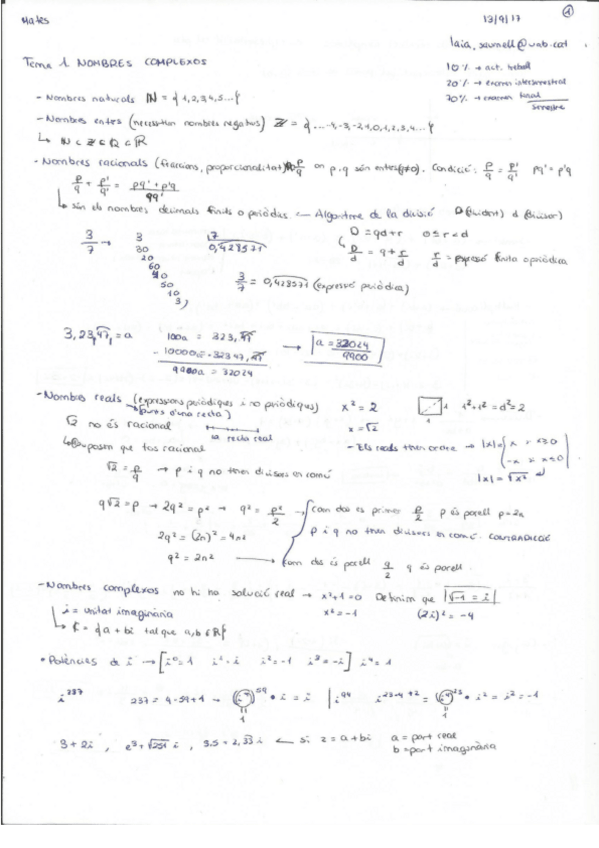 Mates 13/9/17 1
laia.saumell@uab.cat
Tema 1. NOMBRES COMPLEXOS
10% → act. treball
20% → examen intersemestral
70% → examen final
semestre
- Nombres naturals ℕ = {1,2,3,4,5...}
- Nombres enters (necessiten nombres negatius) ℤ = {...-4,-3,-2,-1,0,1,2,3,4...}
↳ ℕ ⊂ ℤ ⊂ ℚ ⊂ ℝ
- Nombres racionals (fraccions, proporcionalitat) p/q on p,q són enters (≠0). Condició: p/q = p'/q' pq' = p'q
p/q + p'/q' = pq' + p'q / qq'
↳ són els nombres decimals finits o periòdics. — Algoritme de la divisió D (dividend) d (divisor)
D = qd + r 0 ≤ r < d
↳ D/d = q + r/d r/d = expressió finita o periòdica
3/7 → 3 7
30 0,428571
20
60
40
50
10
3
3/7 = 0,428571 (expressió periòdica)
3,23,47, = a 100a = 323,47
- 10000a = 32347,47
9900a = 32024
→ a = 32024/9900
- Nombres reals (expressions periòdiques i no periòdiques)
(punts d'una recta)
x² = 2 1 1 1²+1² = d² = 2
√2 no és racional la recta real x = √2
- Els reals tenen ordre → |x| = { x x ≥ 0
-x x ≤ 0
|x| = √x²
↳ Suposem que fos racional
√2 = p/q → p i q no tenen divisors en comú
q√2 = p → 2q² = p² → q² = p²/2 → com dos és primer p/2 p és parell p = 2n
p i q no tenen divisors en comú. CONTRADICCIÓ
2q² = (2n)² = 4n²
q² = 2n² → com dos és parell q/2 q és parell.
- Nombres complexos no hi ha solució real → x²+1=0 Definim que √-1 = i
i = unitat imaginària x² = -1 (2i)² = -4
↳ ℂ = {a + bi tal que a,b ∈ ℝ}
• Potències de i → [i⁰=1 i¹=i i²=-1 i³=-i] i⁴=1
i²³⁷ 237 = 4·59+1 → (i⁴)⁵⁹ · i = i | i⁹⁴ i²³·⁴⁺² = (i⁴)²³ · i² = i² = -1
1 1
3+2i, e³ + √251 i, 3.5 = 2,33 i ← si z = a+bi a = part real
b = part imaginària